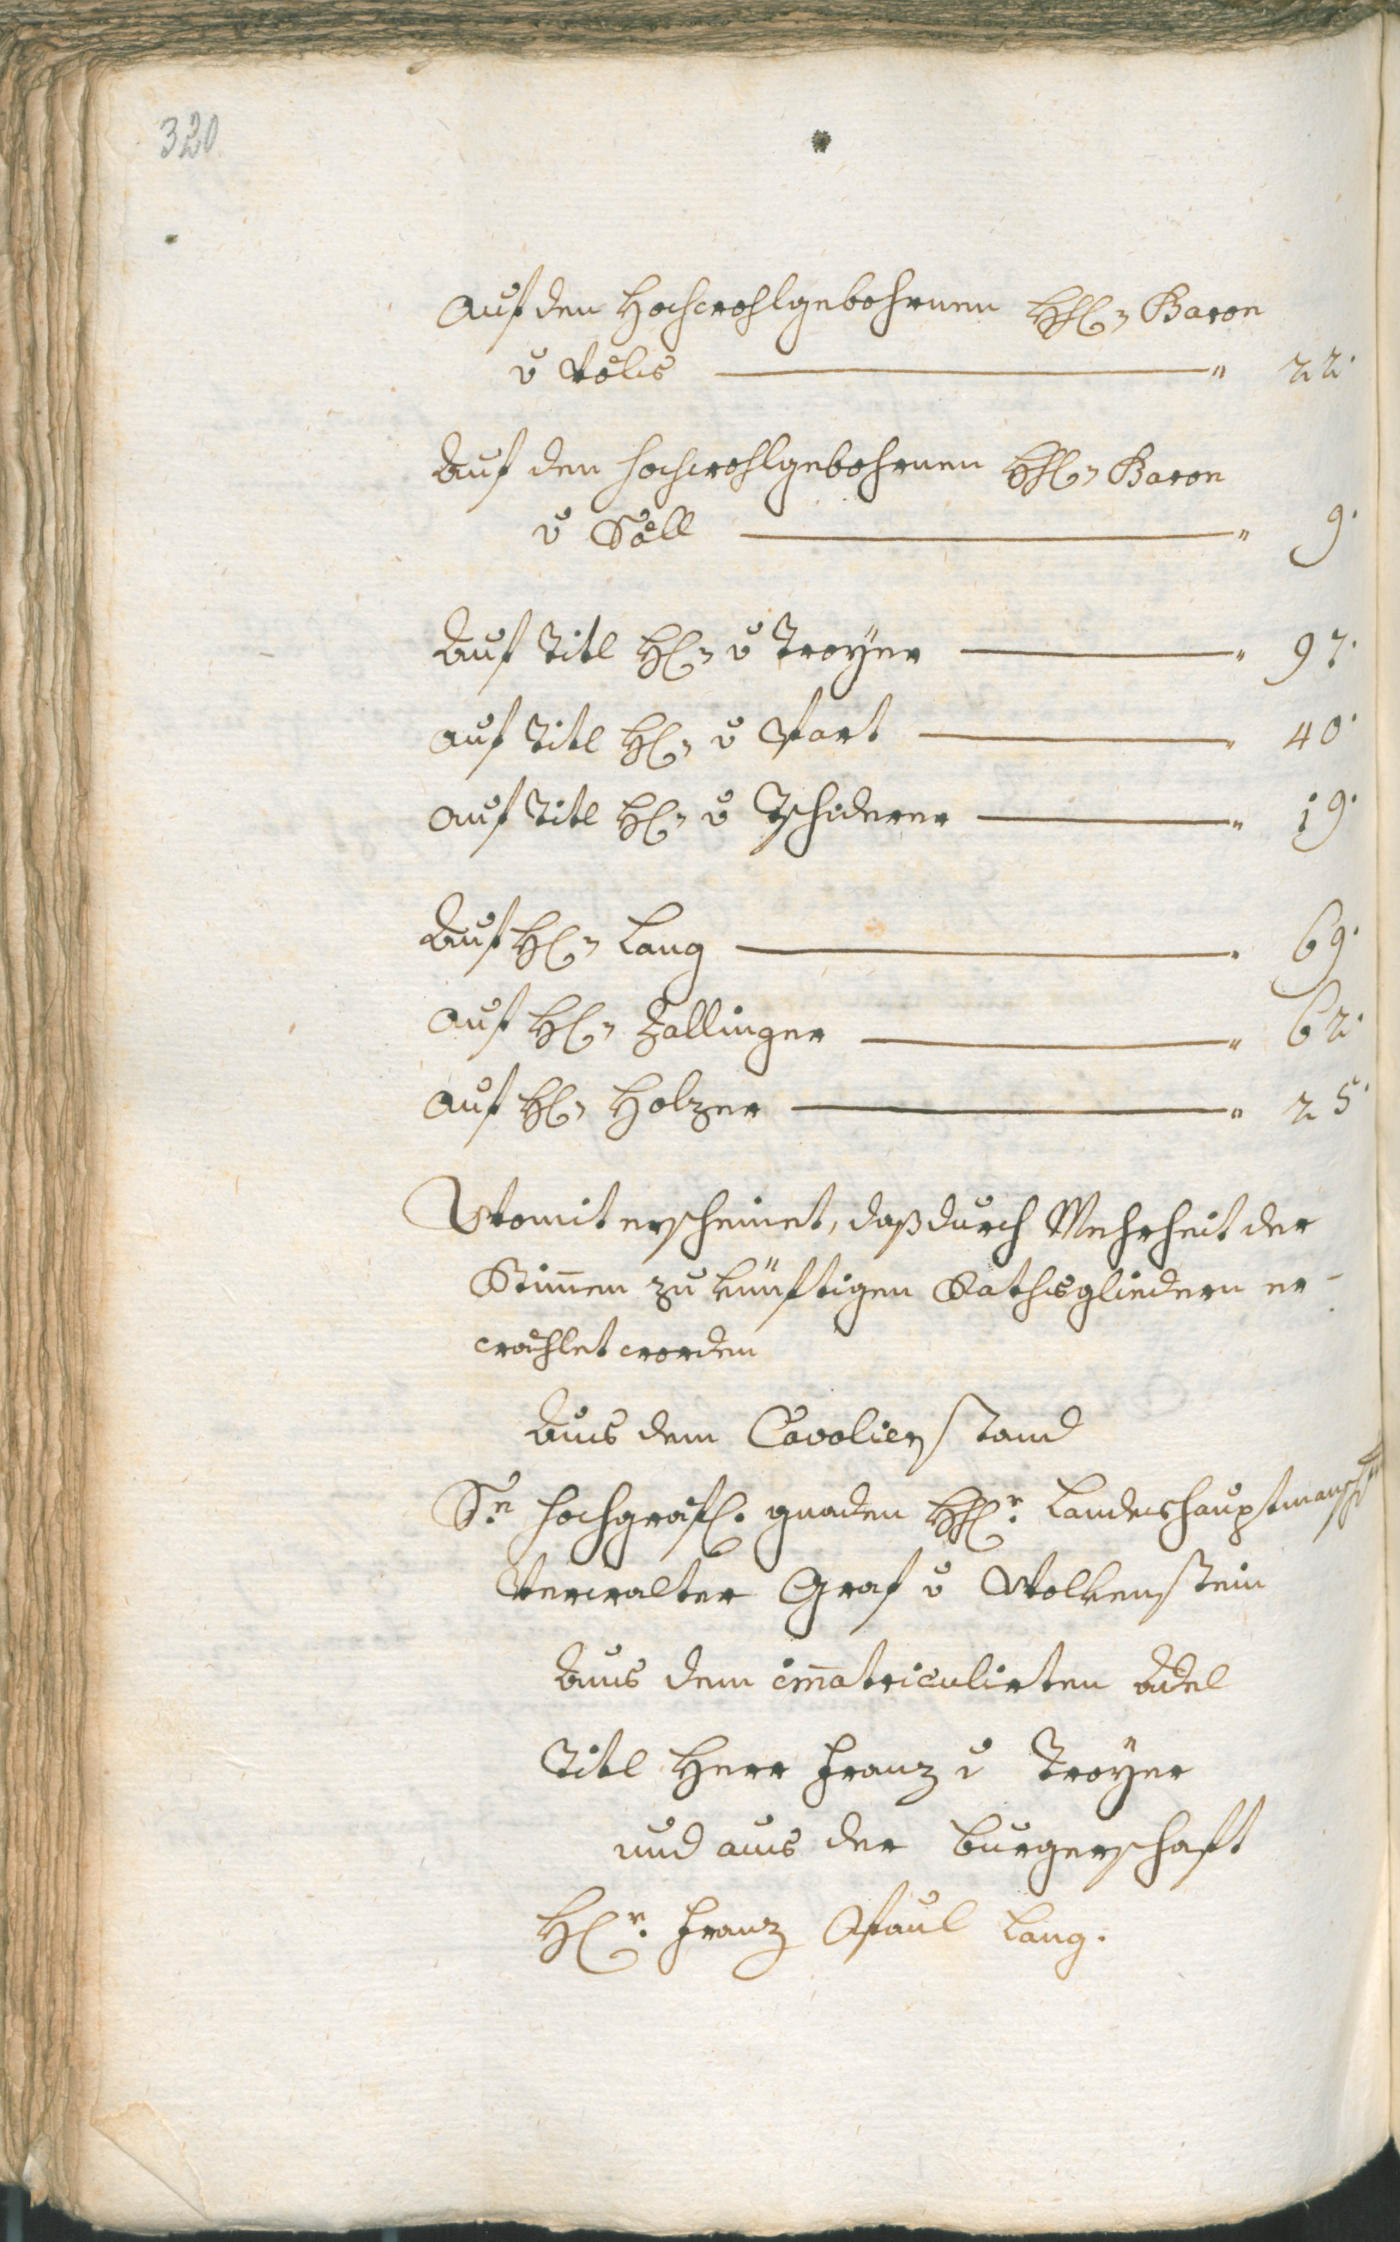 320
Auf den Hochwohlgebohrnen HH: Baron
v Völs — " 22.
Auf den hochwohlgebohrnen HH: Baron
v Söll — " 9.
Auf Titl H: v Troÿer — " 97.
auf Titl H: v Hart — " 40.
auf Titl H: v Tschiderer — " 19.
Auf H: Lang — " 69.
auf H: Zallinger — " 62.
auf H: Holzer — " 25.
Womit erscheinet, daß durch Mehrheit der
Stim̄en zu künftigen Rathsgliedern er-
wählet worden
Aus dem Cavalierstand
Sr hochgräfl. gnaden HHr: Landeshauptmansch
Verwalter Graf v Wolkenstein
Aus dem im̄atriculirten Adel
Titl Herr Franz v Troÿer
und aus der Burgerschaft
Hr: Franz Paul Lang.